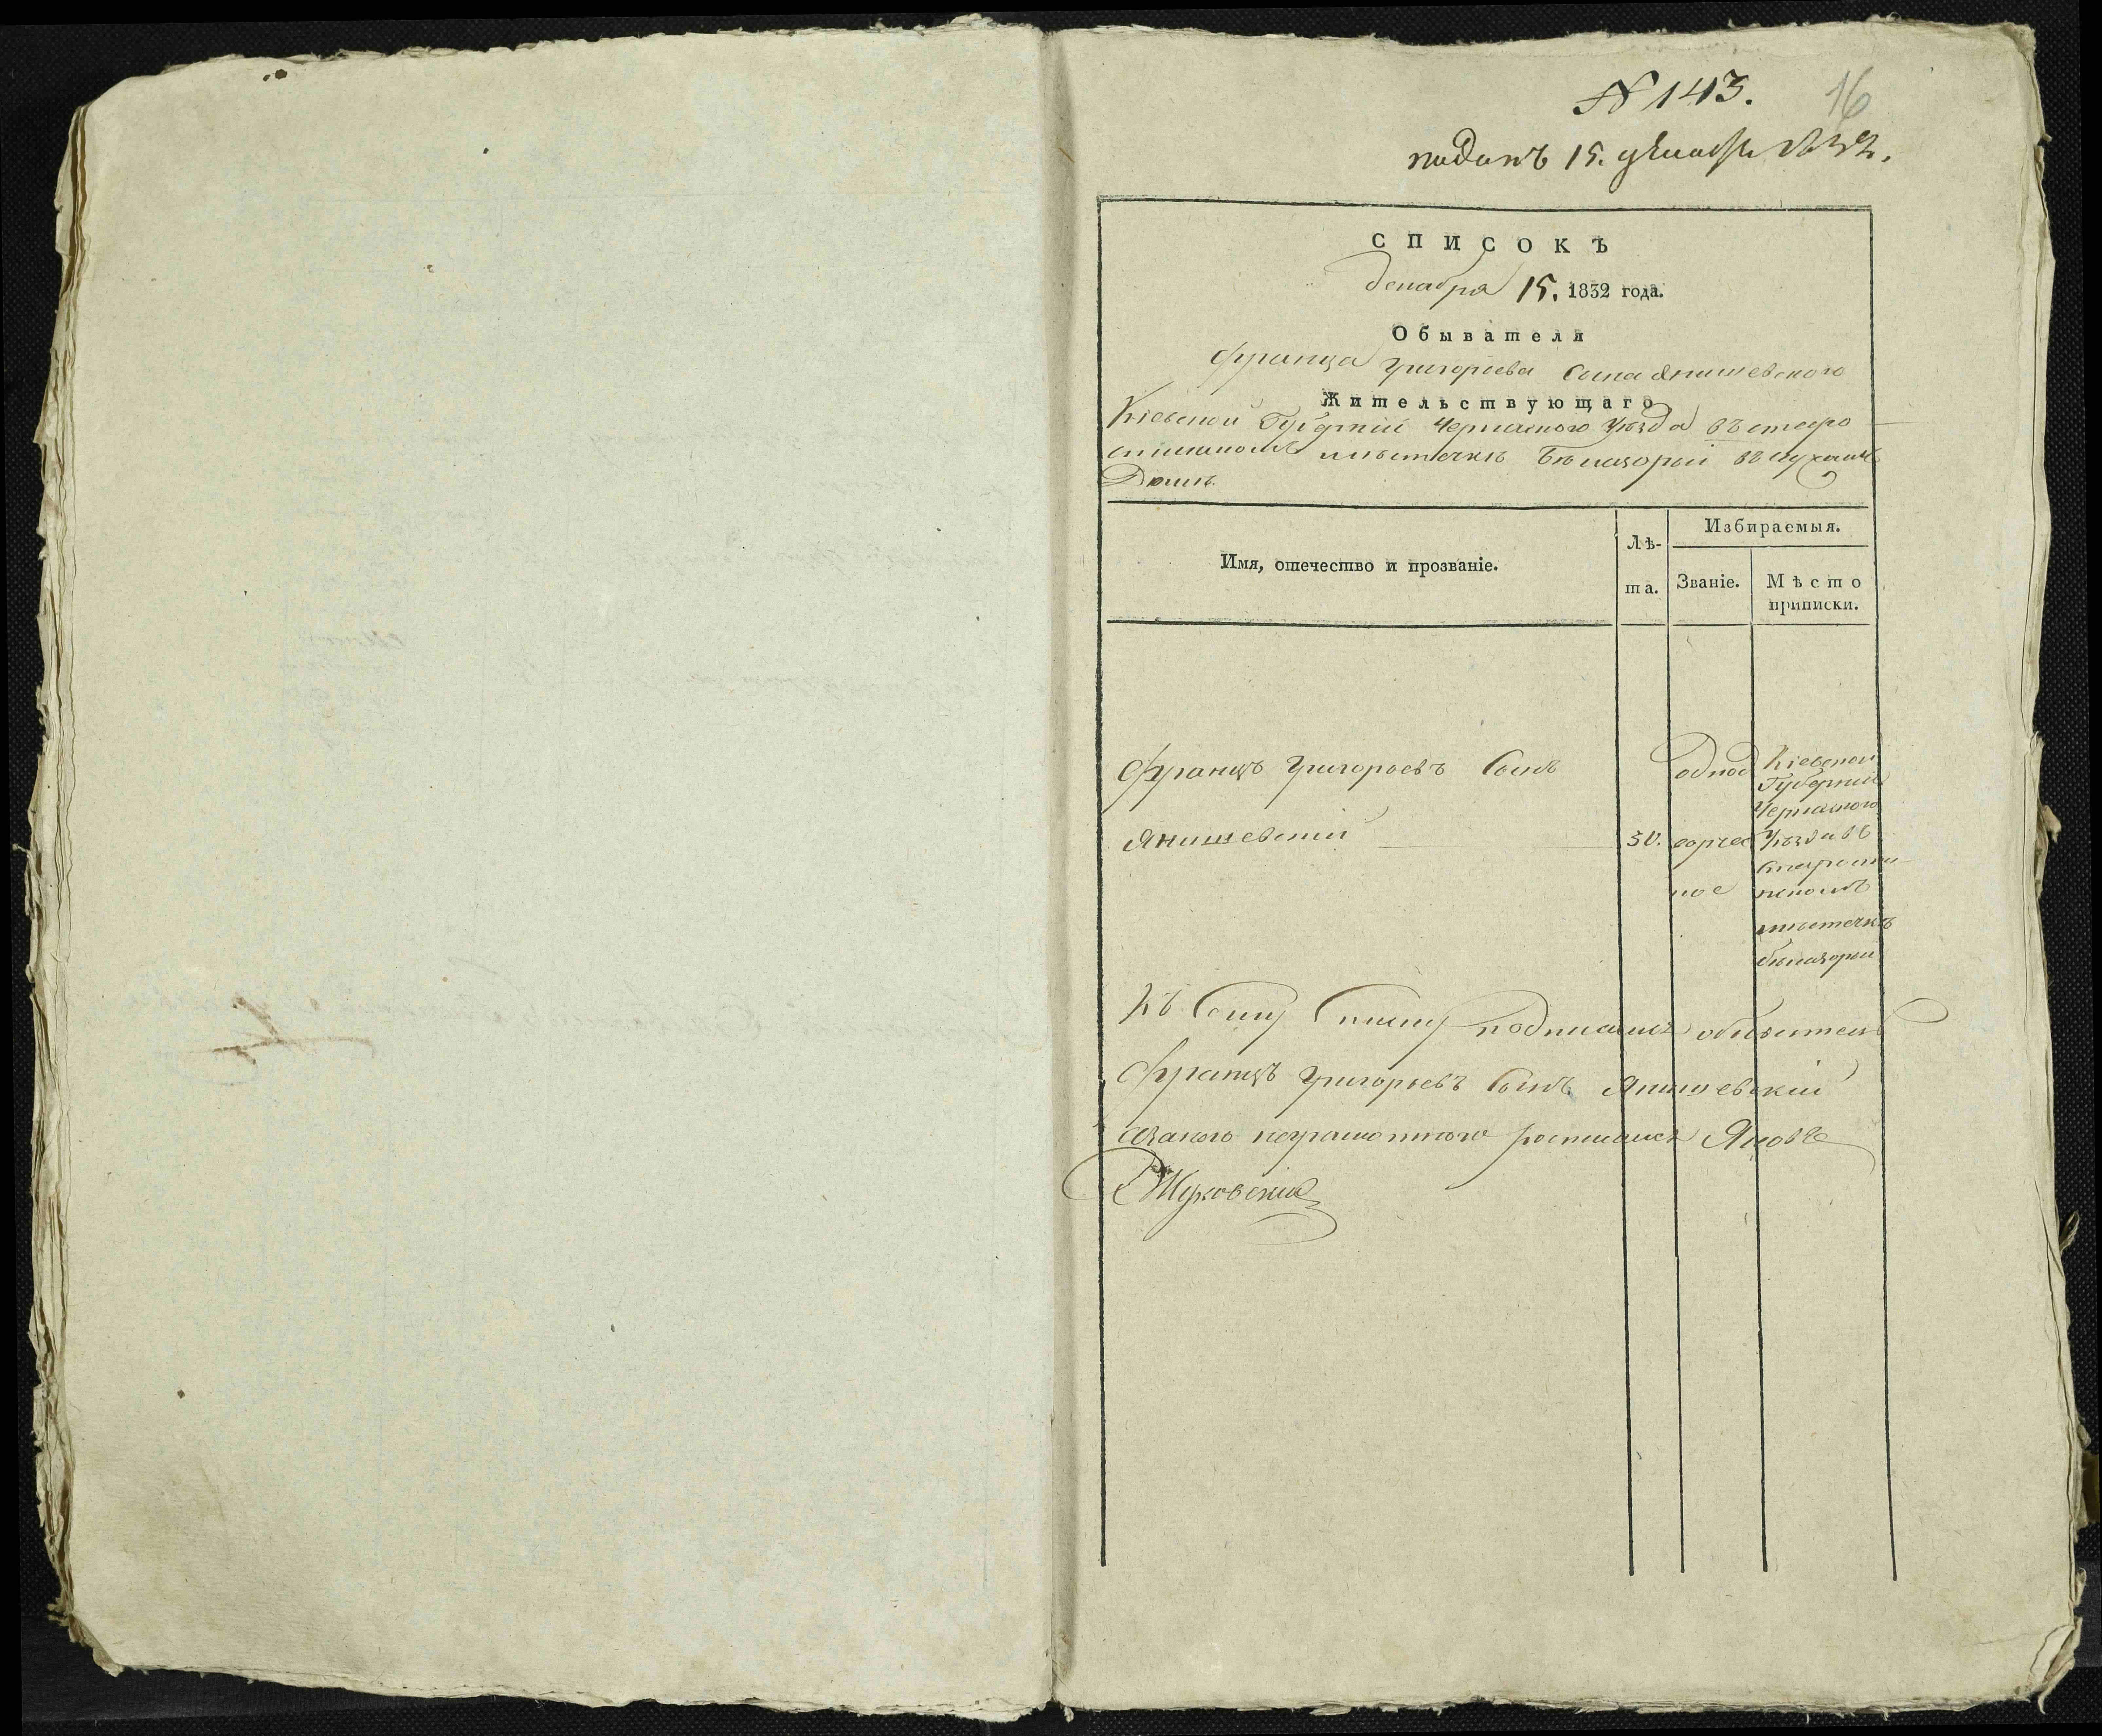 N 143. 16
поданъ 15. декабря 1832.
СПИСОКЪ
декабря 15. 1832 года.
Обывателя
Франца Григорьева Сына Янишевского
Жительствующаго
Кіевской Губерніи Черкаского Уѣзда въ старо
стинскомъ мѣстечкѣ Бѣлазорьи въ
Домѣ
Имя, отечество и прозваніе.
Лѣ-
та.
Избираемыя.
Званіе.
Мѣсто
приписки.
Францъ Григорьевъ Сынъ
Янишевскій 50.
однод
ворчес
кое
Кіевской
Губерніи
Черкаского
Уѣзда въ
Старостин
скомъ
мѣстечкѣ
бѣлазорьи
Къ Сему Списку подписался обыватель
Францъ Григорьевъ Сынъ Янишевскій
неграмотного росписался Яковъ
Жуковскій